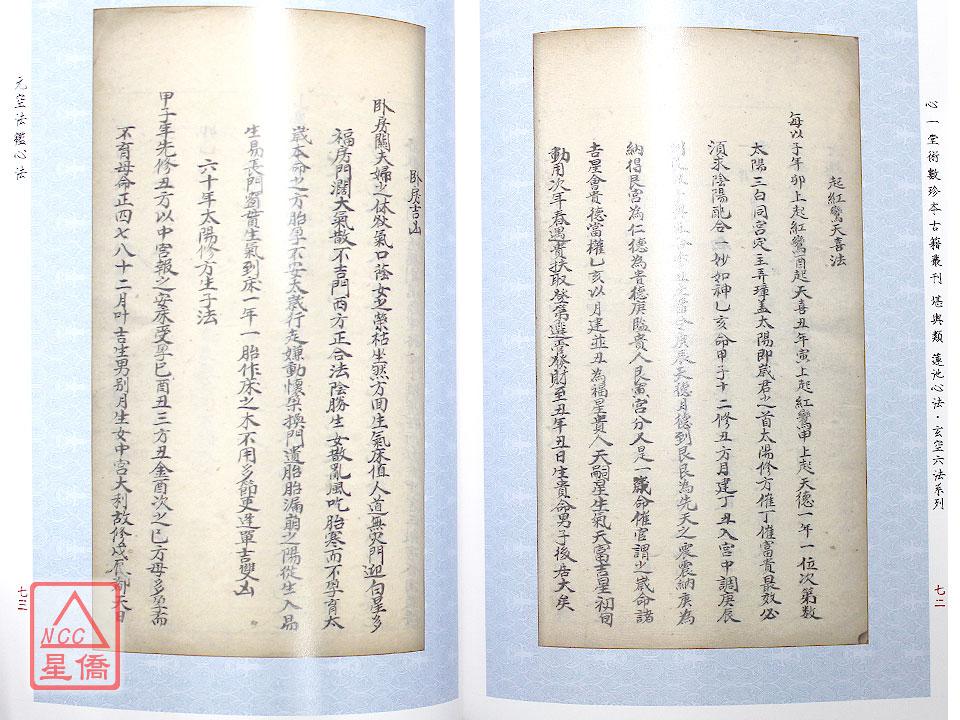 心一堂術數珍本古籍叢刊 堪輿類 蓮池心法·玄空六法系列
七二
起紅鸞天喜法
每以子年卯上起紅鸞酉起天喜丑年寅上起紅鸞申上起天德一年一位次第數
太陽三白同宮定主弄璋蓋太陽即歲君之首太陽修方催丁催富貴最效必
須求陰陽配合一妙如神乙亥命甲子十二修丑方月建丁丑入宮中調庚辰
庚辰天德月德到艮艮為先天之震震納庚為
納得艮宮為仁德為貴德庚臨貴人艮寅宮分又是一歲命催官謂之歲命諸
吉星會貴德當權乙亥以月建並丑為福星貴人天嗣星生氣天富吉星初旬
動用次年春遇貴扶取登第進官發財至丑年丑日生貴命男子後居大矣
臥房吉凶
臥房關夫婦之休咎氣口蔭女之榮枯坐煞方回生氣床值人道無災門迎旬星多
福房門濶大氣散不吉門西方正合法陰勝生女散亂風吃胎寒而不孕育太
歲本命之方胎孕不安太歲行走嫌動懷梁換門遺胎胎漏崩之陽從生入易
生易長門蜀賁生氣到床一年一胎作床之木不用多節更逢單吉雙凶
六十年太陽修方生子法
甲子年先修丑方以中宮報之安床受孕巳酉丑三方丑金酉次之巳方母多至而
不育母命正四七八十二月叶吉生男别月生女中宮大利故修戊辰卯天日
元空法鑑心法
七三
NCC
星僑